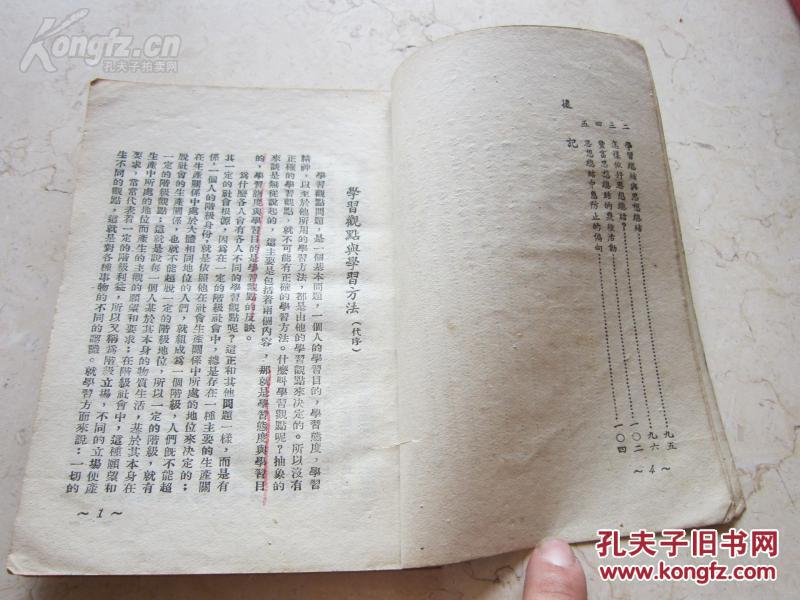 二 學習總結與思想總結……九五
三 怎樣做好思想總結?……九六
四 豐富思想總結的幾種活動……一〇二
五 思想總結中應防止的偏向……一〇四
後記
~4~
學習觀點與學習方法(代序)
學習觀點問題,是一個基本問題,一個人的學習目的,學習態度,學習
精神,以至於他所用的學習方法,都是由他的學習觀點來決定的。所以沒有
正確的學習觀點,就不可能有正確的學習方法。什麼叫學習觀點呢?抽象的
來談是無從說起的,這主要是包括着兩個內容,那就是學習態度與學習目
的,學習態度與學習目的是學習觀點的反映。
爲什麼各人會有各人不同的學習觀點呢?這正和其他問題一樣,而是有
其一定的社會根源,因爲在一定的階級社會中,總是存在一種主要的生產關
係,一個人的階級身份,就是依賴他在社會生產關係中所處的地位來決定的。
在生產關係中處於大體和同地位的人們,就組成爲一個階級,人們既不能超
脫社會的生產關係,也就不能超脫一定的階級地位,所以一定的階級,就有
一定的階級觀點;這就是說每一個人基於其本身的物質生活,基於其本身在
生產中所處的地位而產生的主觀的願望和要求;在階級社會中,這種願望和
要求,常常代表着一定的階級利益,所以又稱爲階級立場,不同的立場便產
生不同的觀點,這就是對各種事物的不同的認識。就學習方面來說:一切的
~1~
Kongfz.cn
孔夫子拍卖网
孔夫子旧书网
www.kongfz.com